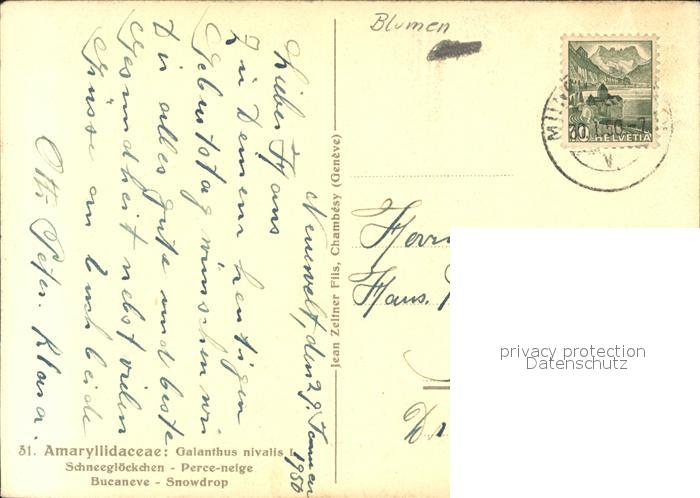 Blumen
10 HELVETIA
Neuewelt, den 29. Januar
1950
Lieber Hans
Zu Deinem heutigen
Geburtstag wünschen wir
Dir alles Gute und beste
Gesundheit nebst vielen
Grüsse an Euch beide
Otti Peter. Klara.
Jean Zellner Fils, Chambésy (Genève)
Herrn
Hans.
privacy protection
Datenschutz
31. Amaryllidaceae: Galanthus nivalis L.
Schneeglöckchen - Perce-neige
Bucaneve - Snowdrop